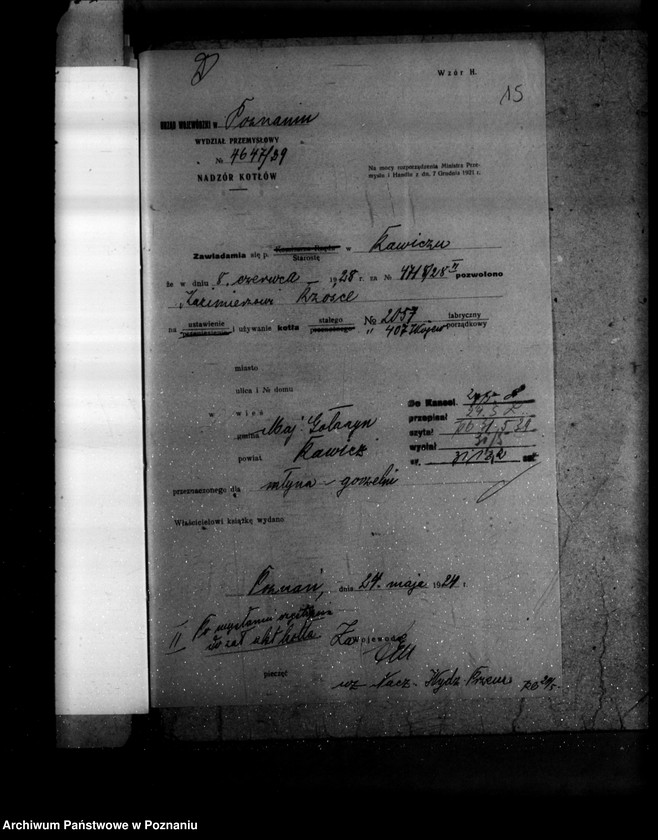 Wzór H.
15
URZĄD WOJEWÓDZKI w Poznaniu
WYDZIAŁ PRZEMYSŁOWY
№ 4647/39
NADZÓR KOTŁÓW
Na mocy rozporządzenia Ministra Prze-
mysłu i Handlu z dn. 7 Grudnia 1921 r.
Zawiadamia się p. Starostę w Rawiczu
że w dniu 8. czerwca 1928 r. za № 4718/28 II pozwolono
Kazimierzowi Rzósce
na ustawienie i używanie kotła stałego № 2057 fabryczny
" 407 Wojew porządkowy
miasto
ulica i № domu
w wieś
gmina Maj. Gołaszyn
powiat Rawicz
Do Kancel.
przepisał 24.5
czytał 31.5.39
wysłał 31/5
przeznaczonego dla młyna - gorzelni
Właścicielowi książkę wydano
Poznań, dnia 24. maja 1924 r.
II Po wysłaniu
do akt kotła
Za Wojewodę
pieczęć
wz Nacz. Wydz. Przem